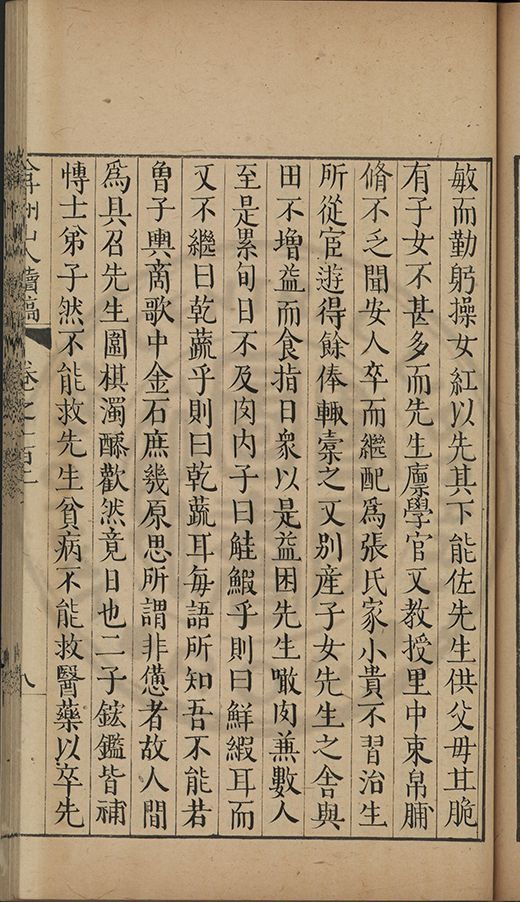 敏而勤躬操女紅以先其下能佐先生供父母甘脆
有子女不甚多而先生廪學官又教授里中束帛脯
脩不乏聞安人卒而繼配為張氏家小貴不習治生
所從宦遊得餘俸輙橐之又别産子女先生之舎與
田不增益而食指日衆以是益困先生噉肉兼數人
至是累旬日不及肉内子曰鮭鰕乎則曰鮮鰕耳而
又不繼曰乾蔬乎則曰乾蔬耳每語所知吾不能若
曾子輿商歌中金石庶幾原思所謂非憊者故人間
為具召先生圍棋濁醪歡然竟日也二子鋐鑑皆補
博士弟子然不能救先生貧病不能救醫藥以卒先
弇州山人續稿 卷之一百二 八